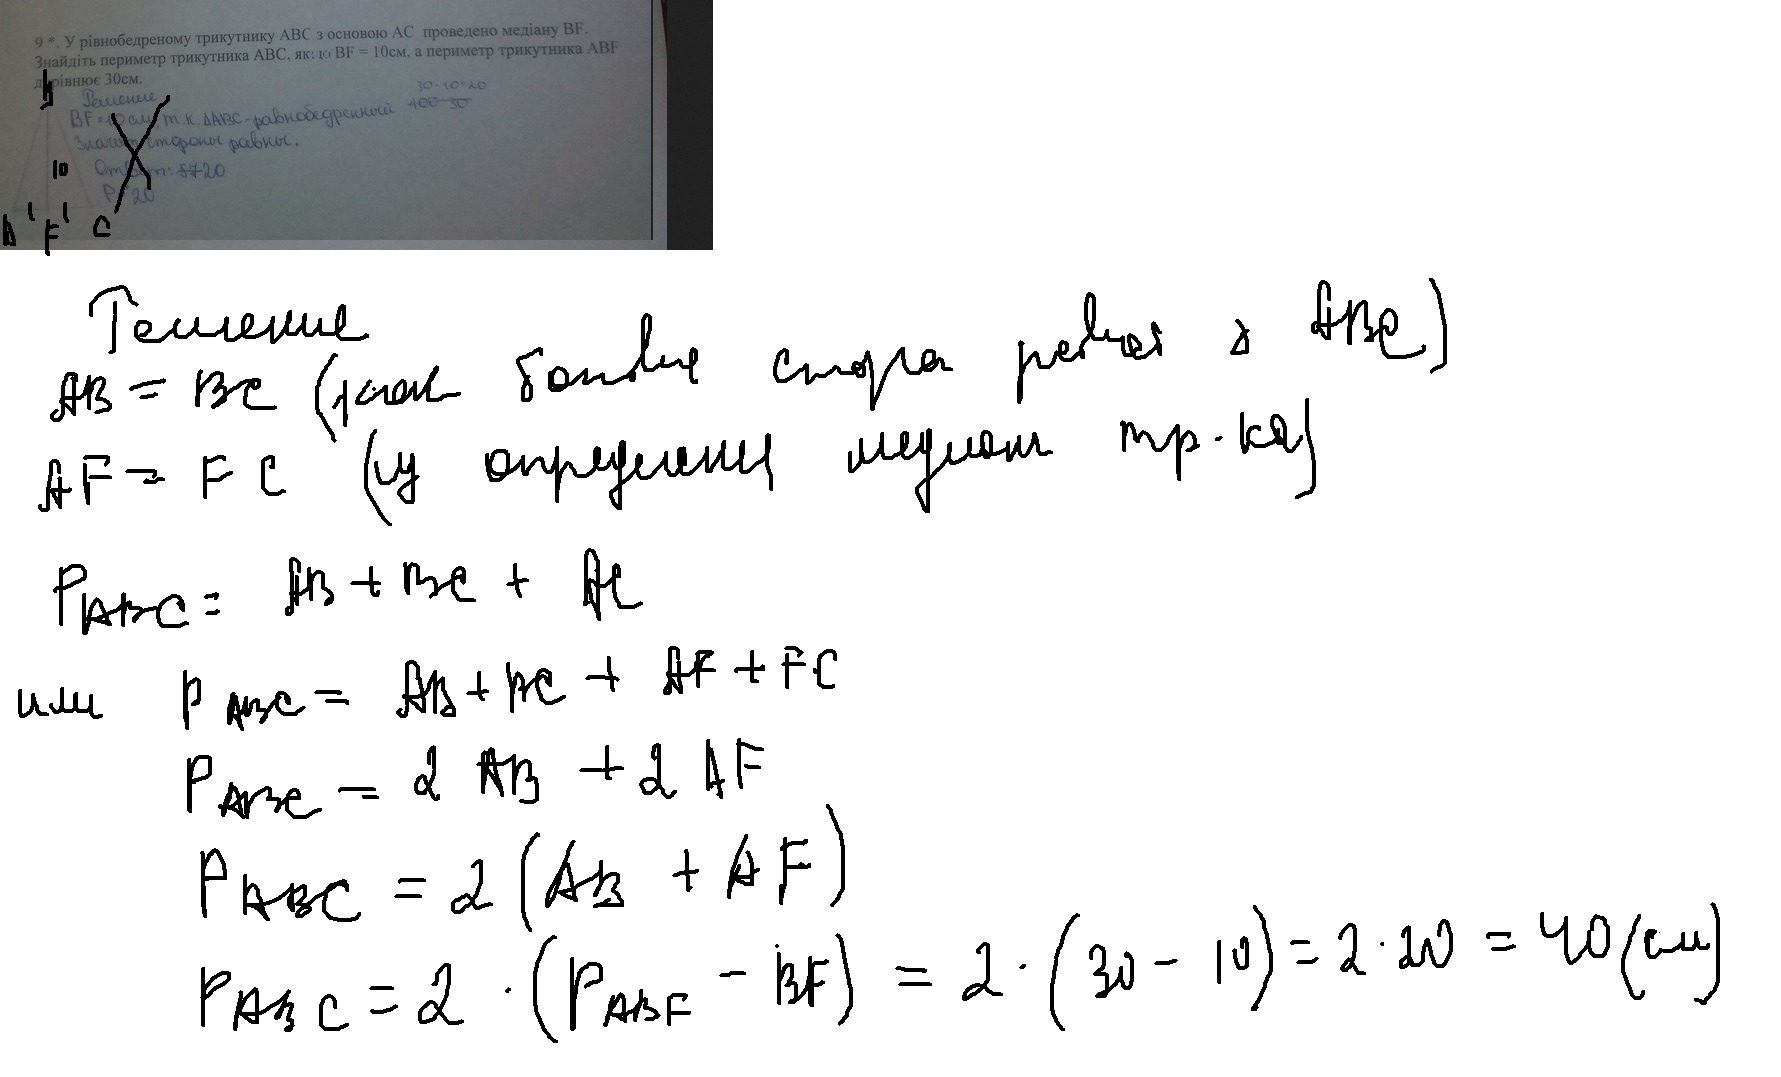 9 *. У рівнобедреному трикутнику ABC з основою AC проведено медіану BF.
Знайдіть периметр трикутника ABC, якщо BF = 10см, а периметр трикутника ABF
дорівнює 30см.
30-10=20
Решение
BF = 10 см, т.к. ΔABC-равнобедренный
Значит стороны равны.
10
Ответ: 20
P 20
A F C
Решение
AB = BC (как боковые ABC)
AF = FC (из определения медиан тр-ка)
P ABC = AB + BC + AC
или P ABC = AB + BC + AF + FC
P ABC = 2 AB + 2 AF
P ABC = 2 (AB + AF)
P ABC = 2 · (P ABF - BF) = 2 · (30 - 10) = 2 · 20 = 40 (см)